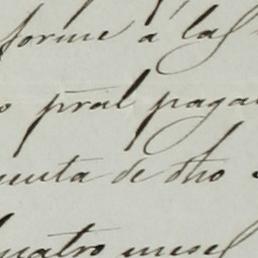 forme á las
o pral pagad
uenta de dho
uatro meses